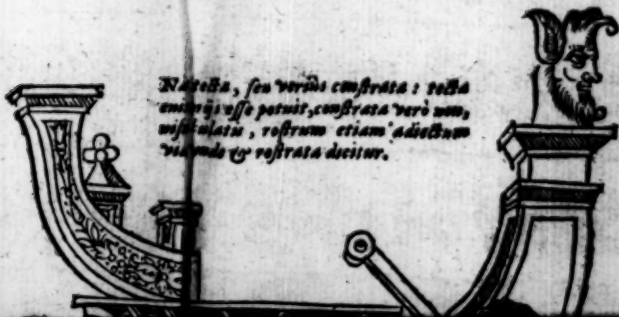 tecta, seu verius constrata: tecta
esse potuit, constrata verò non,
nisi tabulatis, rostrum etiam adiectum
unde & rostrata dicitur.